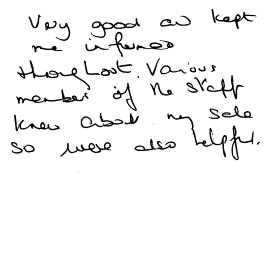 Very good and kept
me informed
throughout. Various
member of the staff
knew about my sale
so were also helpful.